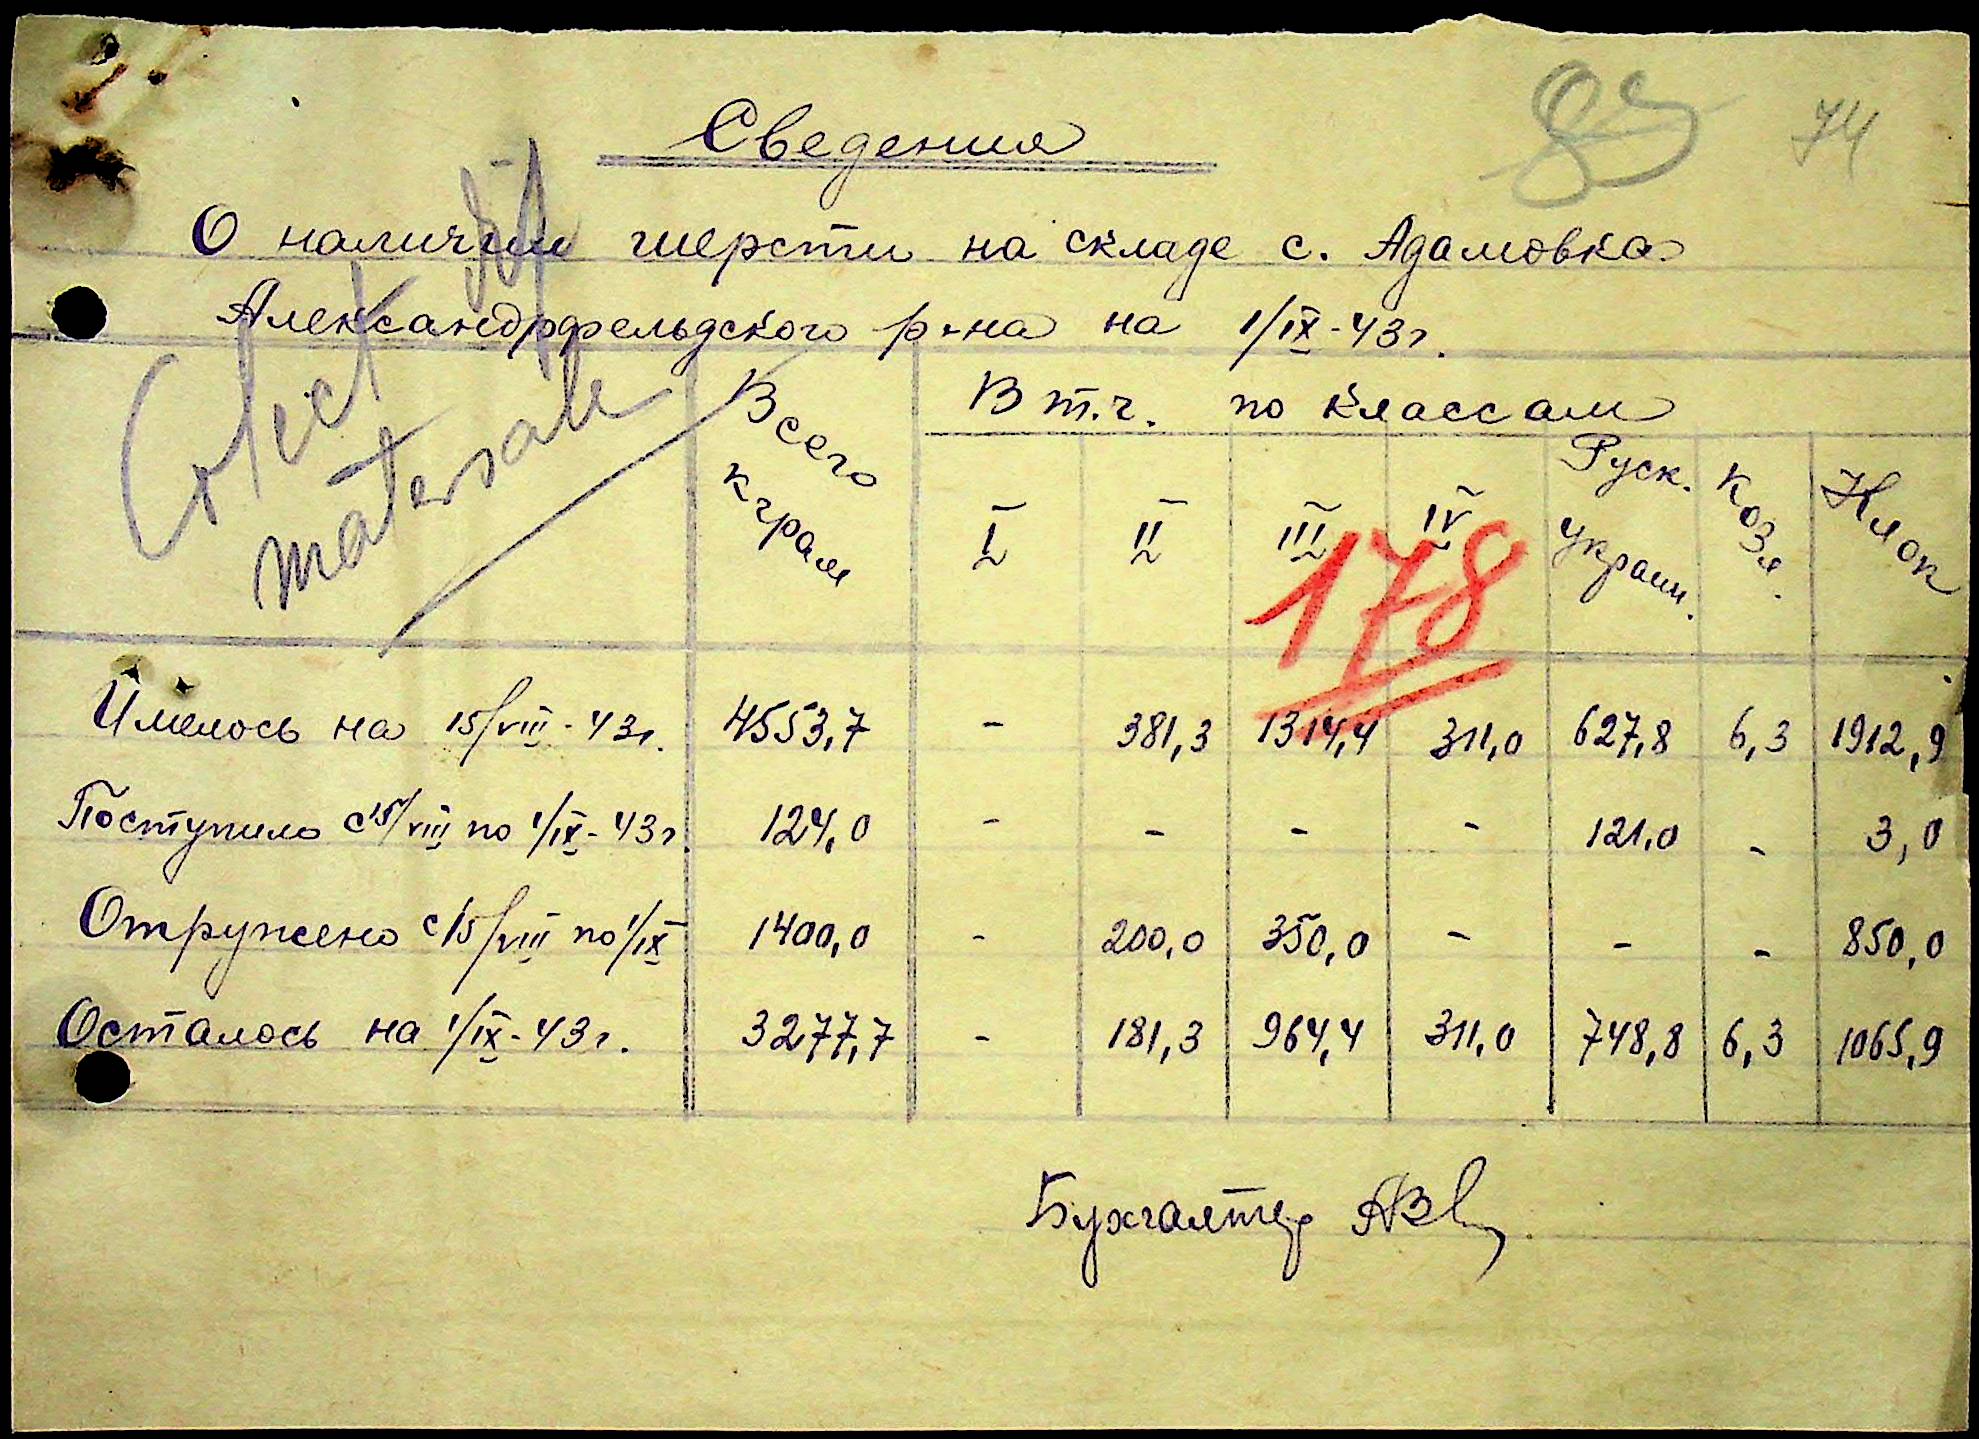 74
Сведения
О наличии шерсти на складе с. Адамовка
Александрфельдского р-на на 1/IX-43г.
Colect
materiale
Всего кграм
В т.ч. по классам
I II III IV Руск. Украин. Козл. Клок
178
Имелось на 15/VIII-43г. 4553,7 - 381,3 1314,4 311,0 627,8 6,3 1912,9
Поступило с 15/VIII по 1/IX-43г. 124,0 - - - - 121,0 - 3,0
Отружено с 15/VIII по 1/IX 1400,0 - 200,0 350,0 - - - 850,0
Осталось на 1/IX-43г. 3277,7 - 181,3 964,4 311,0 748,8 6,3 1065,9
Бухгалтер